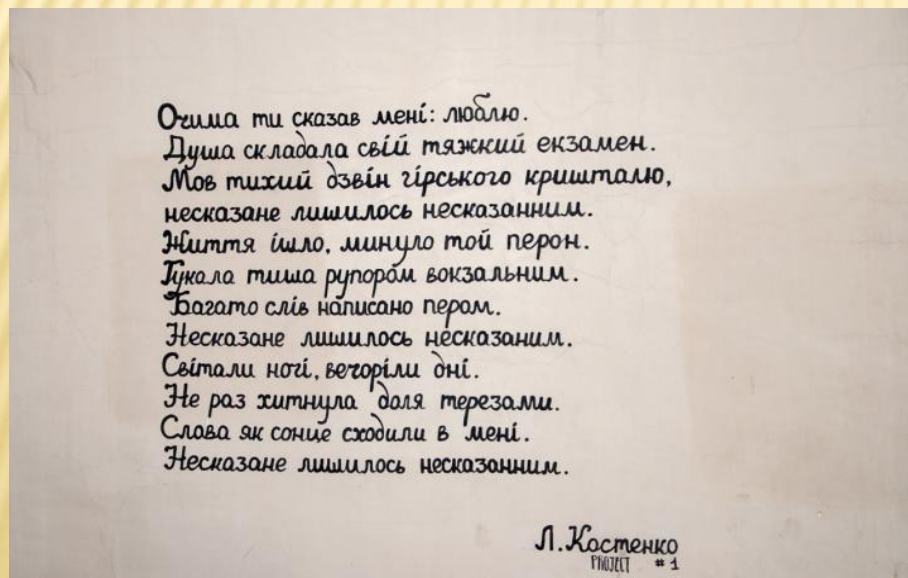 Очима ти сказав мені: люблю.
Душа складала свій тяжкий екзамен.
Мов тихий дзвін гірського кришталю,
несказане лишилось несказанним.
Життя ішло, минуло той перон.
Гукала тиша рупором вокзальним.
Багато слів написано пером.
Несказане лишилось несказаним.
Світали ночі, вечоріли дні.
Не раз хитнула доля терезами.
Слова як сонце сходили в мені.
Несказане лишилось несказанним.
Л. Костенко
PROJECT #1